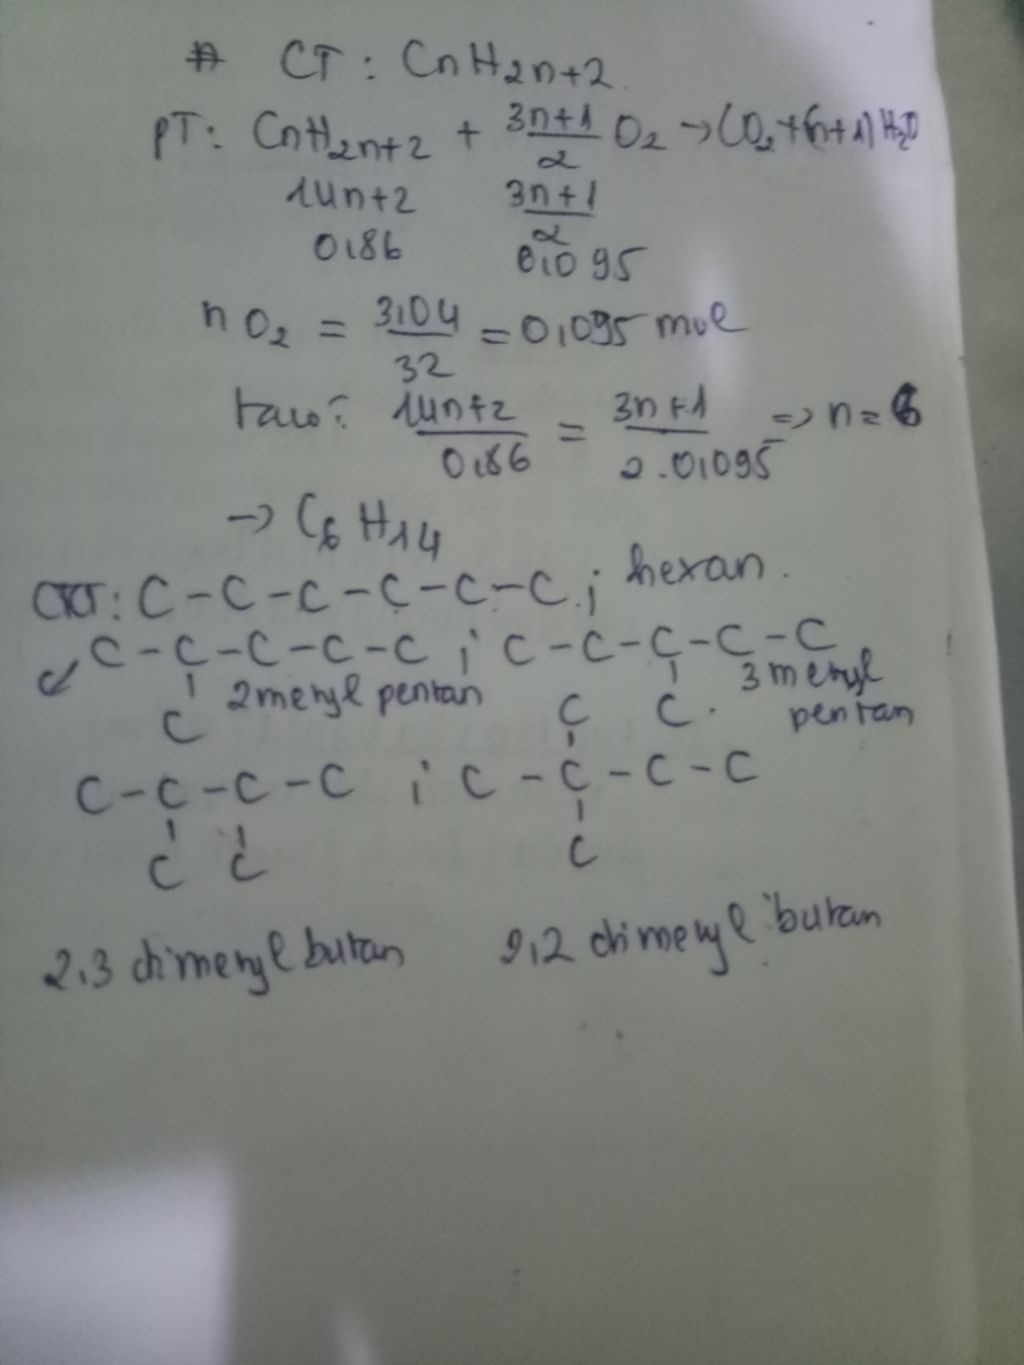 # CT: CnH2n+2
PT: CnH2n+2 + 3n+1/2 O2 → CO2 + (n+1) H2O
14n+2 3n+1/2
0,86 0,095
nO2 = 3,04/32 = 0,095 mol
14n+2/0,86 = 3n+1/2.0,095 => n = 6
→ C6H14
CTCT: C-C-C-C-C-C; hexan.
C-C-C-C-C ; C-C-C-C-C
C 2 metyl pentan C. 3 metyl pentan
C
C-C-C-C ; C-C-C-C
C C C
2,3 đimetyl butan 2,2 đimetyl butan